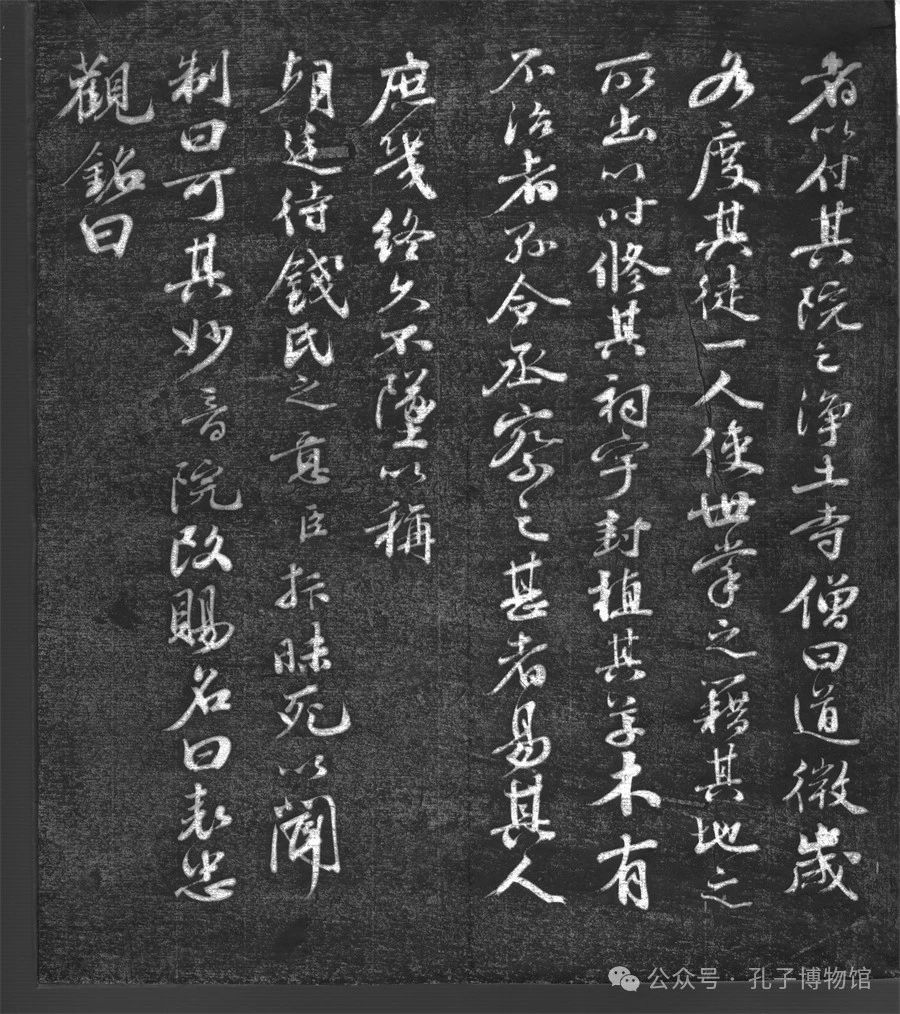 者以付其院之淨土寺僧曰道微歲
各度其徒一人使世掌之籍其地之
所出以時修其祠宇封植其草木有
不治者縣令丞察之甚者易其人
庶幾終久不墜以稱
朝廷待錢氏之意臣抃昧死以聞
制曰可其妙音院改賜名曰表忠
觀銘曰
公众号·孔子博物馆